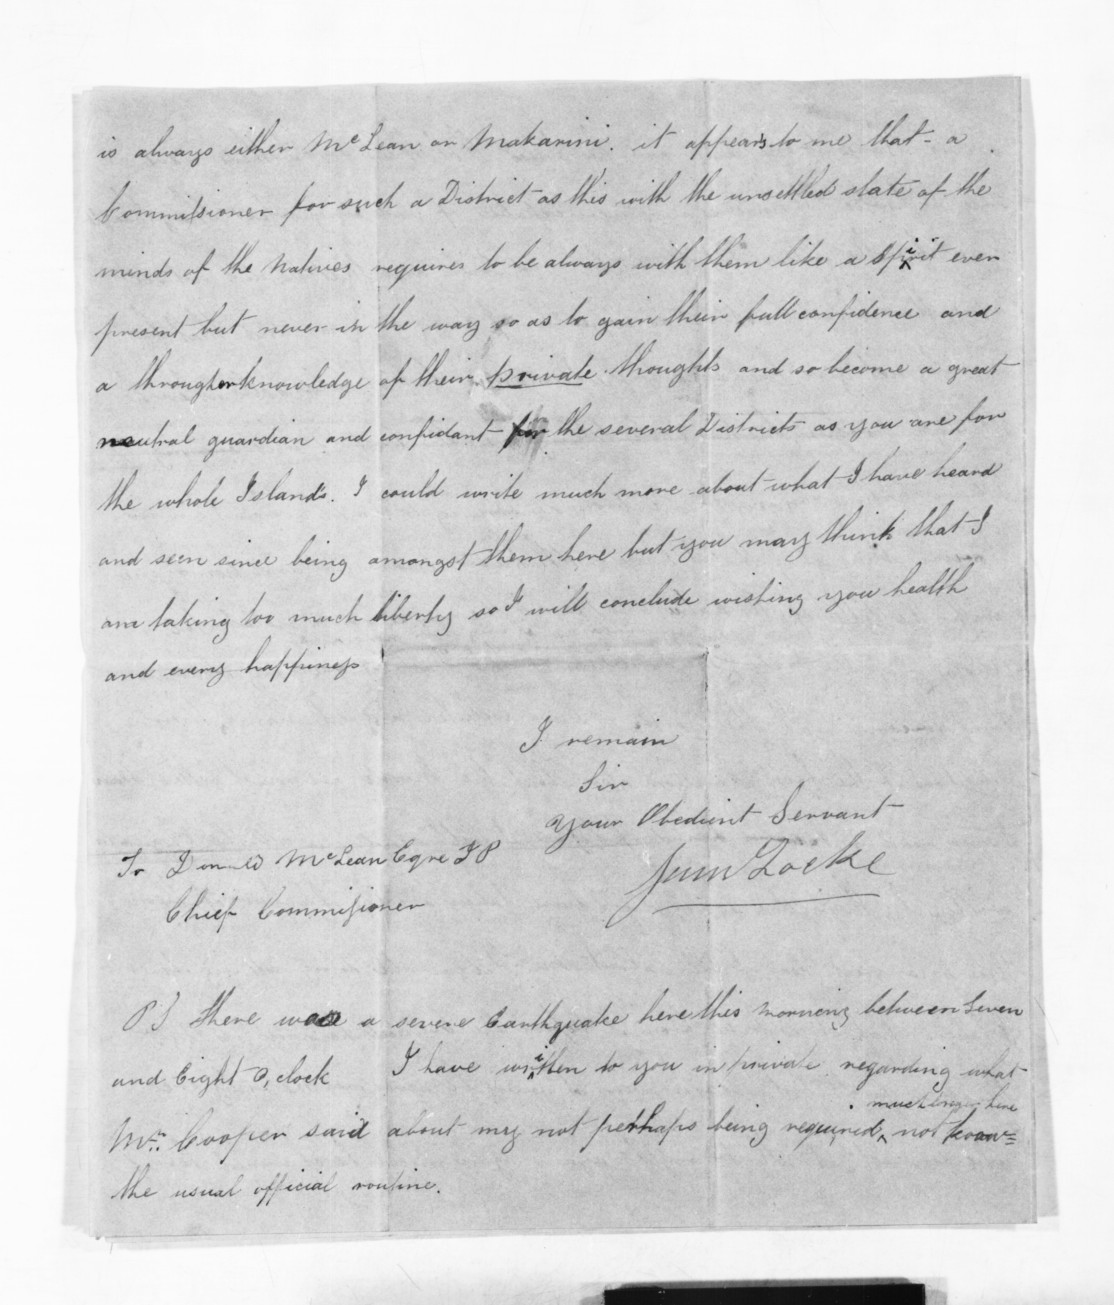 is always either McLean or Makarini. it appears to me that a
Commissioner for such a District as this with the unsettled state of the
minds of the Natives requires to be always with them like a Spirit ever
present but never in the way so as to gain their full confidence and
a through knowledge of their private thoughts and so become a great
neutral guardian and confidant for the several Districts as you are for
the whole Islands. I could write much more about what I have heard
and seen since being amongst them here but you may think that I
am taking too much liberty so I will conclude wishing you health
and every happiness
I remain
Sir
Your Obedient Servant
Locke
To Donald McLean Eqre JP
Chief Commissioner
PS There was a severe Earthquake here this morning between Seven
and Eight O,clock I have written to you in private regarding what
Mr. Cooper said about my not perhaps being required much longer here not know=
the usual official routine.